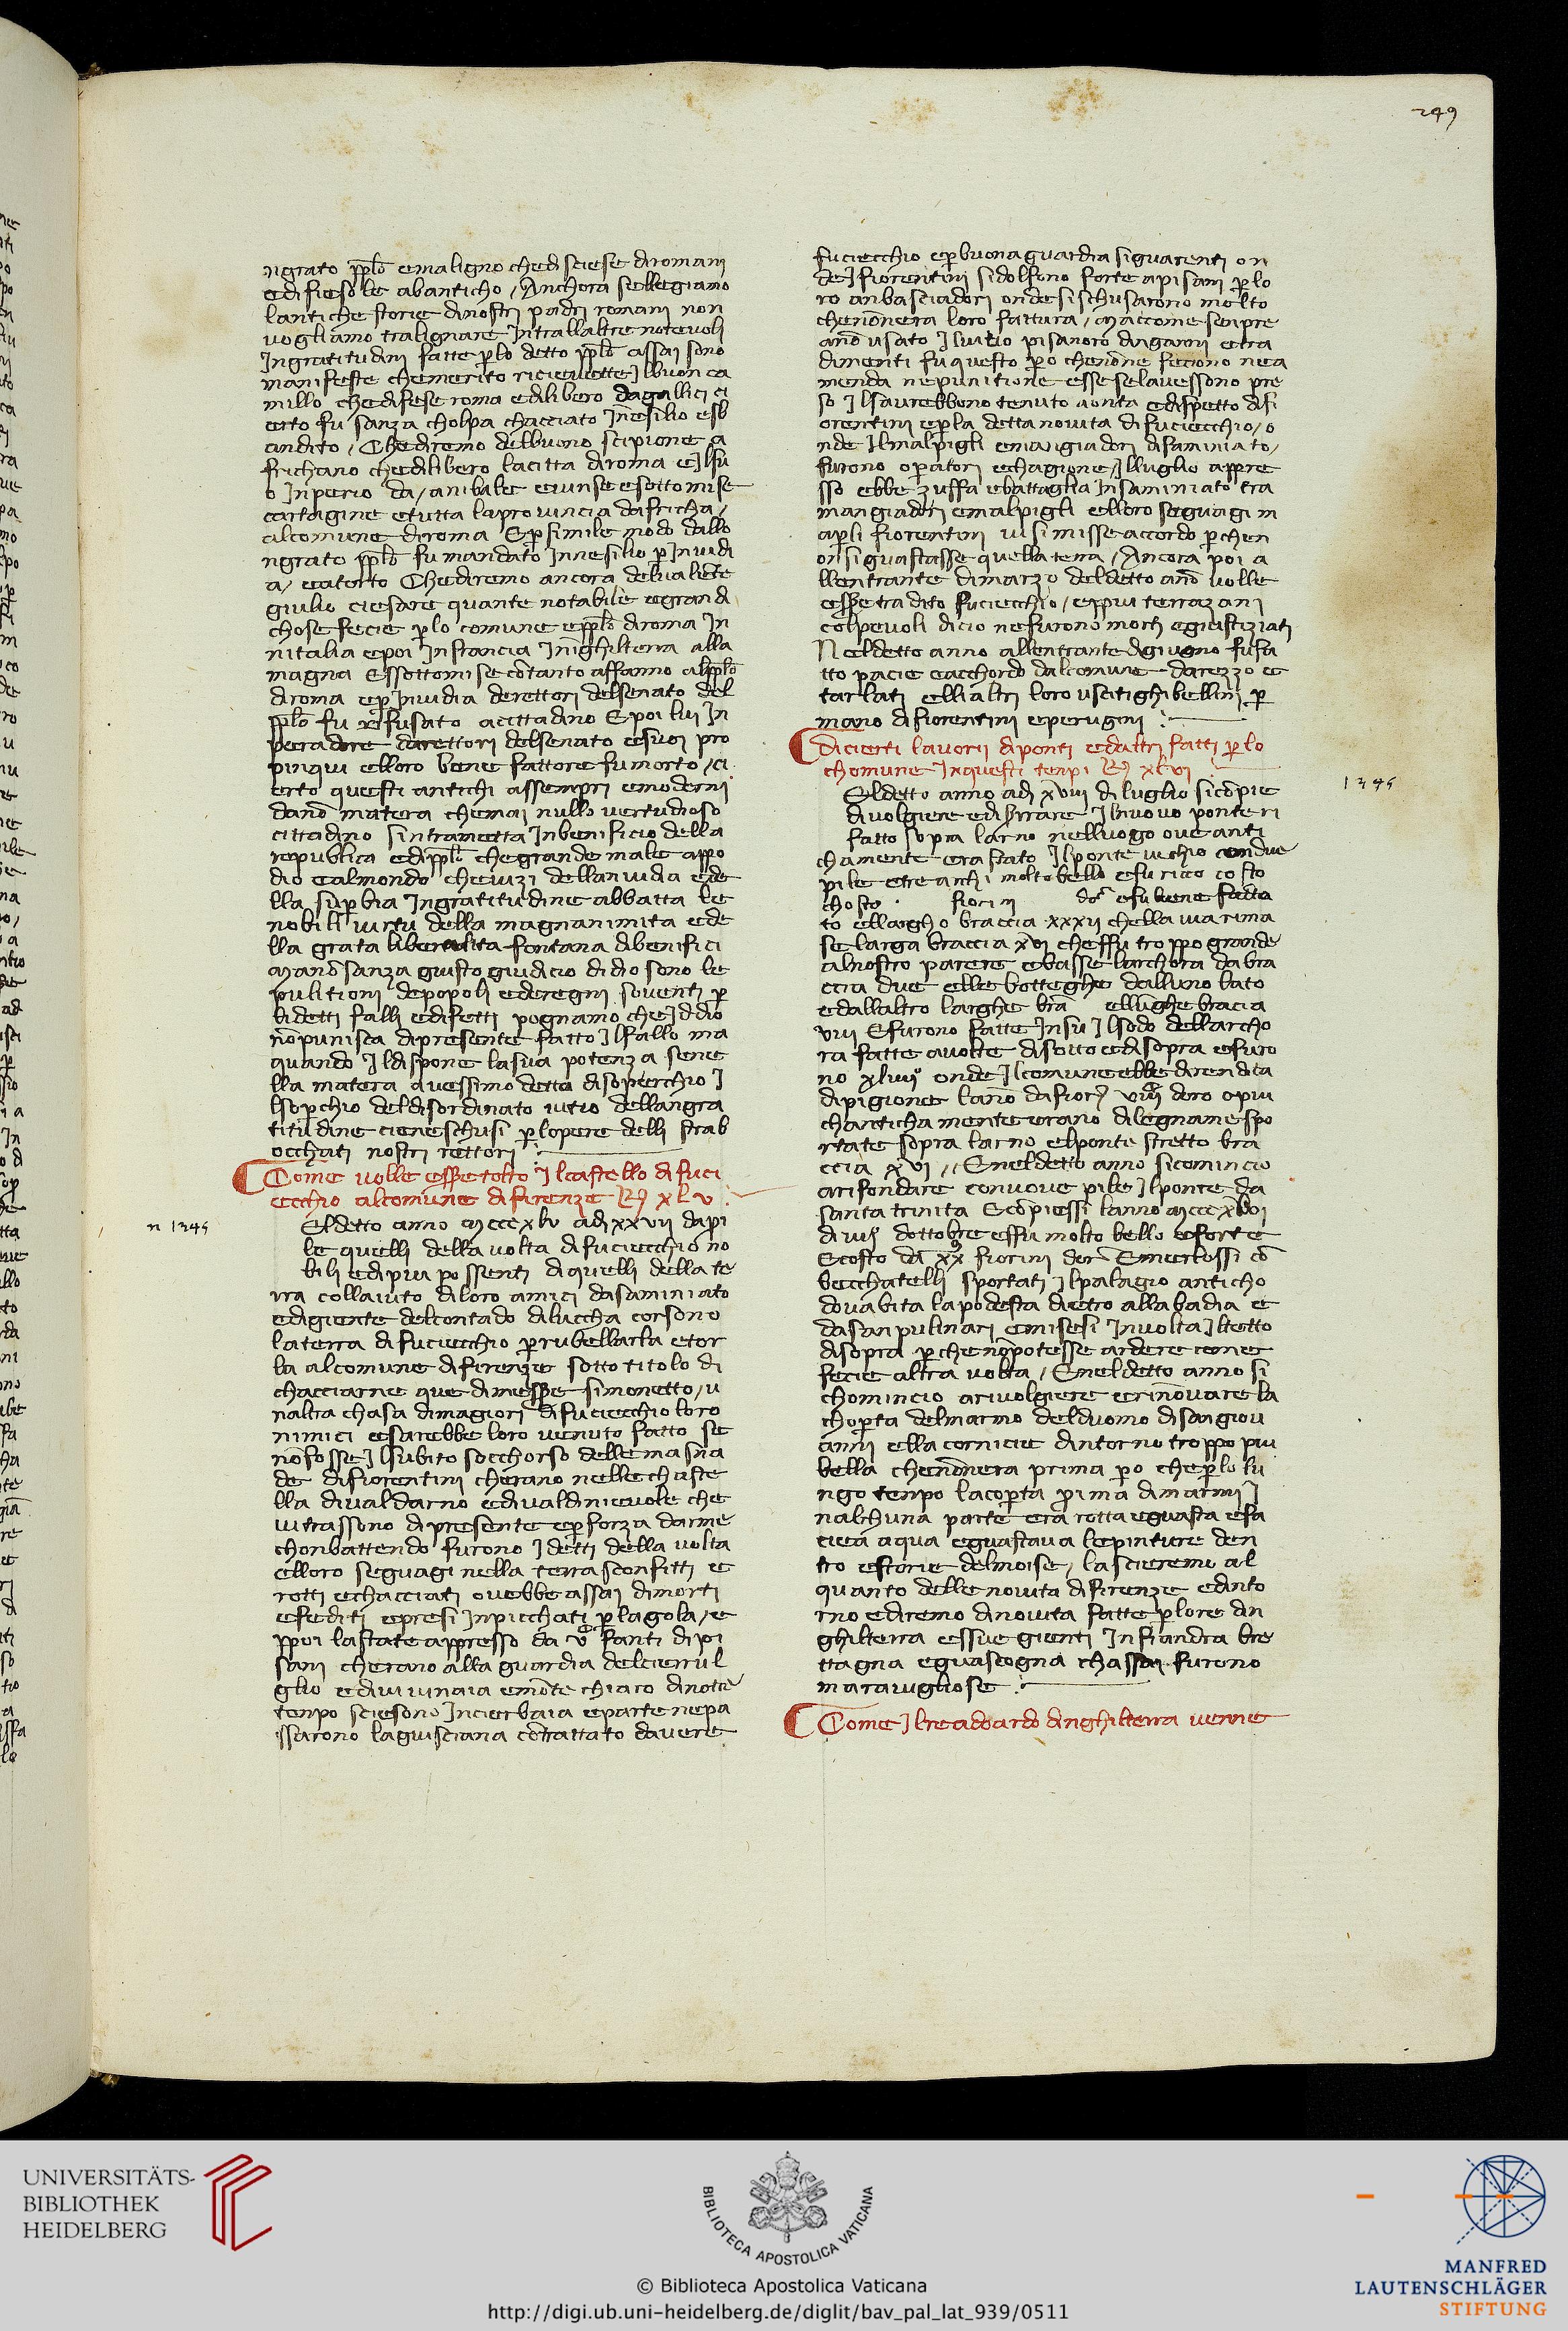 249
ngrato pplo emaligno chedisciese diromani
edifiesole abanticho / Anchora sellegiamo
lantiche storie dinostri padri romani non
vogliamo tralignare Intrallaltre notevoli
Ingratitudini fatte plo detto pplo assai sono
manifeste chemerito ricievette Ilbuon ca
millo chedifese roma edilibero dagallici ci
erto fu sanza cholpa chacciato Inesilio esb
andito / Chediremo delbuono scipione a
frichano chedilibero lacitta diroma e Ilsu
o Inperio da / anibale evinse esottomise
cartagine etutta laprovincia dafricha /
alcomune diroma Epsimile modo dallo
ngrato pplo fu mandato Innesilio p Invidi
a / eatorto Chediremo ancora delvaliente
giulio ciesare quante notabile egrandi
chose fecie plo comune epplo diroma In
nitalia epoi Instancia Inighilterra alla
magna Essottomise cotanto affanno alpplo
diroma ep Invidia derettori delsenato del
pplo fu refusato acittadino Epoi lui In
peradore darettori delsenato esuoi pro
pinqui elloro bene fattore fu morto / ci
erto questi antichi assempri emoderni
dano matera chemai nullo vertudioso
cittadino sintrametta Inbenificio della
republica edipplo chegrande male appo
dio ealmondo chevizi dellanvidia ede
lla supbia Ingratitudine abbatta le
nobili virtu della magnanimita ede
lla grata liberalita fontana dibenifici
Mano sanza giusto giudicio didio sono le
pulitioni depopoli ederegni soventi p
lidetti falli edifetti pognamo che Iddio
nopunisca dipresente fatto Ilfallo ma
quando Ildispone lasua potenza sene
lla matera avessimo detto disoperchio I
lsopchio deldisordinato vitio dellangra
titudine cieneschusi plopere delli strab
occhati nostri rettori
Come volle esse tolto Ilcastello di fuci
ecchio alcomune difirenze R͛ xlv
n 1345
Eldetto anno mcccxlv adi xxvii dapri
le quelli della volta difuciecchio no
bili edipiu possenti diquelli della te
rra collaiuto diloro amici dasaminiato
edigiente delcontado dilucha corsono
laterra difuciecchio prubellarla etor
la alcomune difirenze sotto titolo di
chacciarne que dimesse simonetto / u
naltra chasa dimagiori difuciecchio loro
nimici esarebbe loro venuto fatto se
nofosse Ilsubito socchorso dellemasna
de difiorentini cherano nellechaste
lla divaldarno edivaldinievole che
vitrassono dipresente epforza darme
chonbattendo furono Idetti della volta
elloro seguagi nella terra sconfitti e
rotti echacciati ovebbe assai dimorti
efediti epresi Inpicchati plagola / e
ppoi lastate appresso da vc fanti dipi
sani cherano alla guardia delcierrul
glio edivivinaia emonte chiaro dinotte
tenpo sciesono Incierbaia eparte nepa
ssarono laguisciana cotrattato davere
fuciecchio epbuona guardia siguarenti on
de Ifiorentini sidolfono forte apisani plo
ro anbasciadori ondesischusarono molto
chenonera loro fattura / Maccome senpre
ano usato Ilvitio pisanoro dinganni etra
dimenti fu questo po chenone feciono nea
menda nepunitione esse selavessono pre
so Ilsavrebbono tenuto aonta edispetto difi
orentini epla detta novita di fuciecchio / o
nde Ilmalpigli emangiadori disaminiato /
furono opatori echagione / Illuglio appre
sso ebbe zuffa ebattaglia Insaminiato tra
mangiadori emalpigli elloro seguagi m
apli fiorentini visimisse accordo pchen
onsiguastasse quella terra / Ancora poi a
llentrante dimarzo deldetto ano volle
esse tradito fuciecchio / eppiu terrazani
colpevoli dicio nefurono morti egiustiziati
Neldetto anno allentrante digiugno fu fa
tto pacie eacchordo dalcomune darezzo e
tarlati ellialtri loro uscitighibellini p
mano difiorentini eperugini
Dicierti lavorii diponti edaltri fatti plo
chomune Inquesti tenpi R͛ xlvi
1345
Eldetto anno adi xviii di luglio sicopie
divolgiere ediserrare Ilnuovo ponte ri
fatto sopra larno nelluogo ove anti
chamente era stato Ilponte vechio condue
pile etre archi molto bello efu ricco costo
chosto fiorini doro efu bene fatto
to ellargho braccia xxxii chella via rima
se larga braccia xvi cheffu troppo grande
alnostro parere ebasse larchora dabra
ccia due elle botteghe dalluno lato
edallaltro larghe bra ellughe bracia
viii Efurono fatte Insu Ilsodo dellarcho
ra fatte avolte disotto edisopra efuro
no xliiij onde Ilcomune ebbe direndita
dipigione lano dafiori viiic doro opiu
chanticha mente erano dilegname spo
rtate sopra larno elponte stretto bra
ccia xvi / Eneldetto anno sicomincio
arifondare connove pile Ilponte da
santa trinita Ecopiessi lanno mcccxlvi
di iiij dottobre effu molto bello efforte
Ecosto da xxm fiorini dor Emerlossi co
becchatelli sportati Ilpalagio anticho
dovabita lapodesta dietro allabadia e
dasanpulinari emisesi Involta Iltetto
disopra pchenopotesse ardere come
fecie altra volta / Eneldetto anno si
chomincio arivolgiere erinovare la
choperta delmarmo delduomo disangiov
anni ella cornicie dintorno troppo piu
bella chenonera prima po cheplo lu
ngo tenpo lacoperta prima dimarmi I
nalchuna parte era rotta eguasta efa
ciea aqua eguastava lepinture den
tro estorie delmoise / lascieremo al
quanto delle novita difirenze edinto
rno ediremo dinovita fatte plore din
ghilterra essue gienti Infiandra bre
ttagna eguascogna chassai furono
maravigliose
Come Ilre adoardo dinghilterra venne
UNIVERSITÄTS-
BIBLIOTHEK
HEIDELBERG
BIBLIOTECA APOSTOLICA VATICANA
© Biblioteca Apostolica Vaticana
http://digi.ub.uni-heidelberg.de/diglit/bav_pal_lat_939/0511
MANFRED
LAUTENSCHLÄGER
STIFTUNG